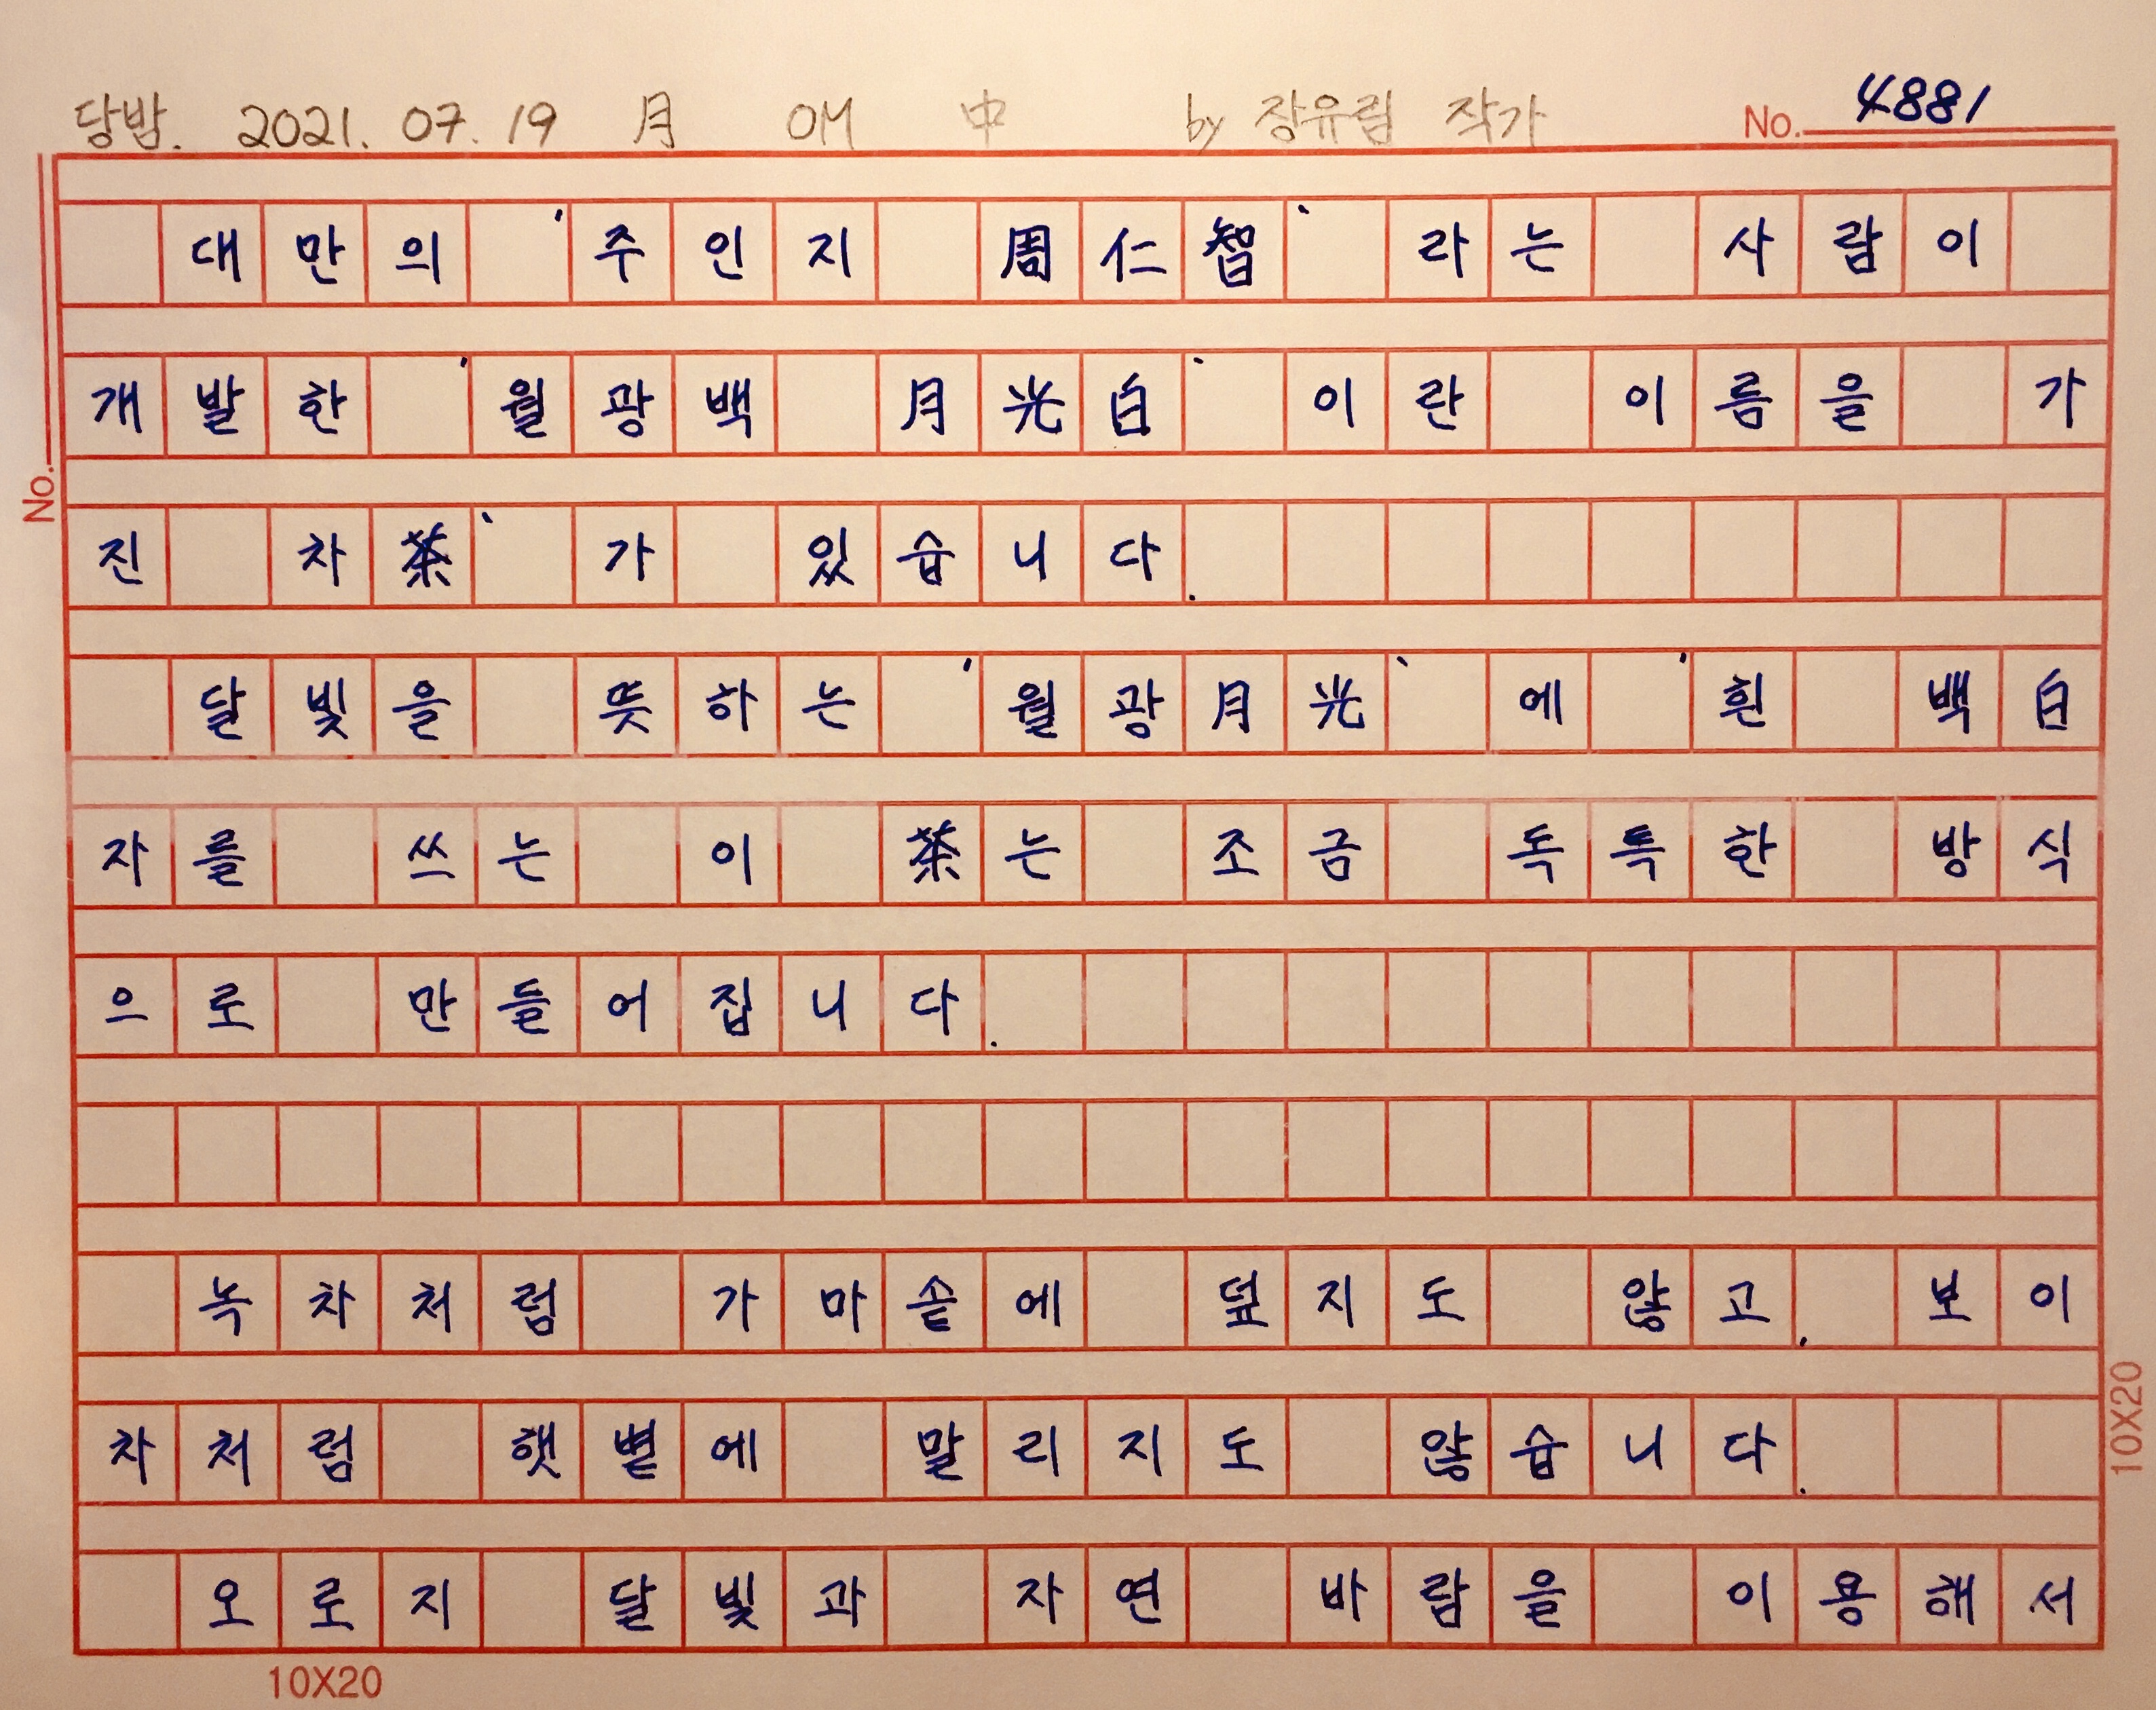 당밤. 2021. 07. 19 月 OM 中 by 장유림 작가 No. 4881
대만의 '주인지 周仁智' 라는 사람이
개발한 '월광백 月光白' 이란 이름을 가
진 차茶' 가 있습니다.
달빛을 뜻하는 '월광月光' 에 '흰 백白
자를 쓰는 이 茶는 조금 독특한 방식
으로 만들어집니다.
녹차처럼 가마솥에 덖지도 않고, 보이
차처럼 햇볕에 말리지도 않습니다.
오로지 달빛과 자연 바람을 이용해서
No.
10X20
10X20